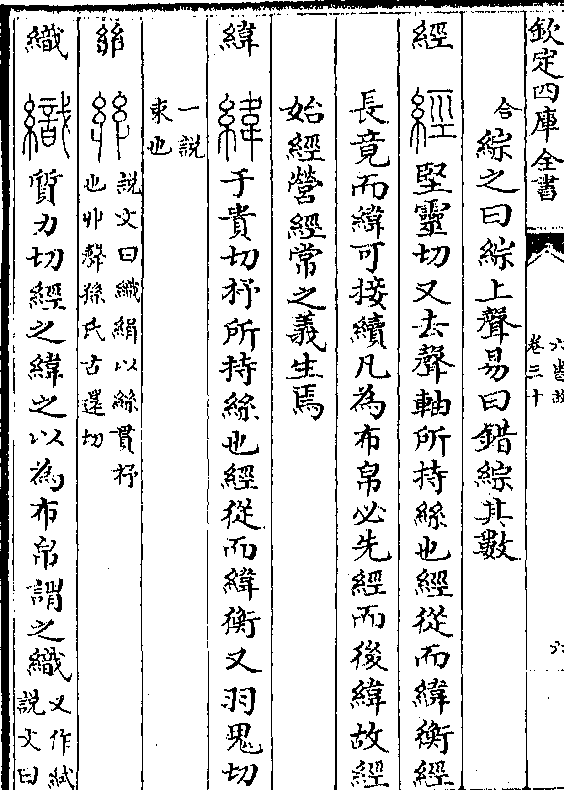 欽定四庫全書
六書故
卷三十
六
合綜之曰綜上聲易曰錯綜其數
經 經 堅靈切又去聲軸所持絲也經從而緯衡經
長竟而緯可接續凡為布帛必先經而後緯故經
始經營經常之義生焉
緯 緯 于貴切杼所持絲也經從而緯衡又羽鬼切
一説
束也
説文曰織絹以絲貫杼
也丱聲孫氏古還切
織 織 質力切經之緯之以為布帛謂之織
又作
説文曰